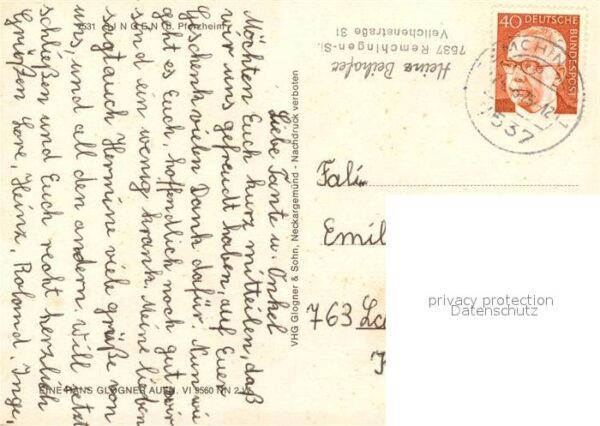 7531 EISINGEN b. Pforzheim
Liebe Tante u. Onkel
Möchten Euch kurz mitteilen, daß
wir uns gefreudt haben, auf Euer
Geschenk vielen Dank dafür. Nun wie
geht es Euch, hoffendlich noch gut wir
sind ein wenig krank. Meine lieben
sagt auch Hermine viel grüße von
uns, und all den andern. Will jetzt
schließen und Euch recht herzlich
Grüßen Lore, Heinz, Roland, Inge,
EINE HANS GLOGNER AUFN. VI 9560 NN 2 W
VHG Glogner & Sohn, Neckargemünd - Nachdruck verboten
Heinz Beihofer
7537 Remchingen-Si.
Veilchenstraße 31
40 DEUTSCHE BUNDESPOST
7537
Fali
Emil
763
privacy protection
Datenschutz